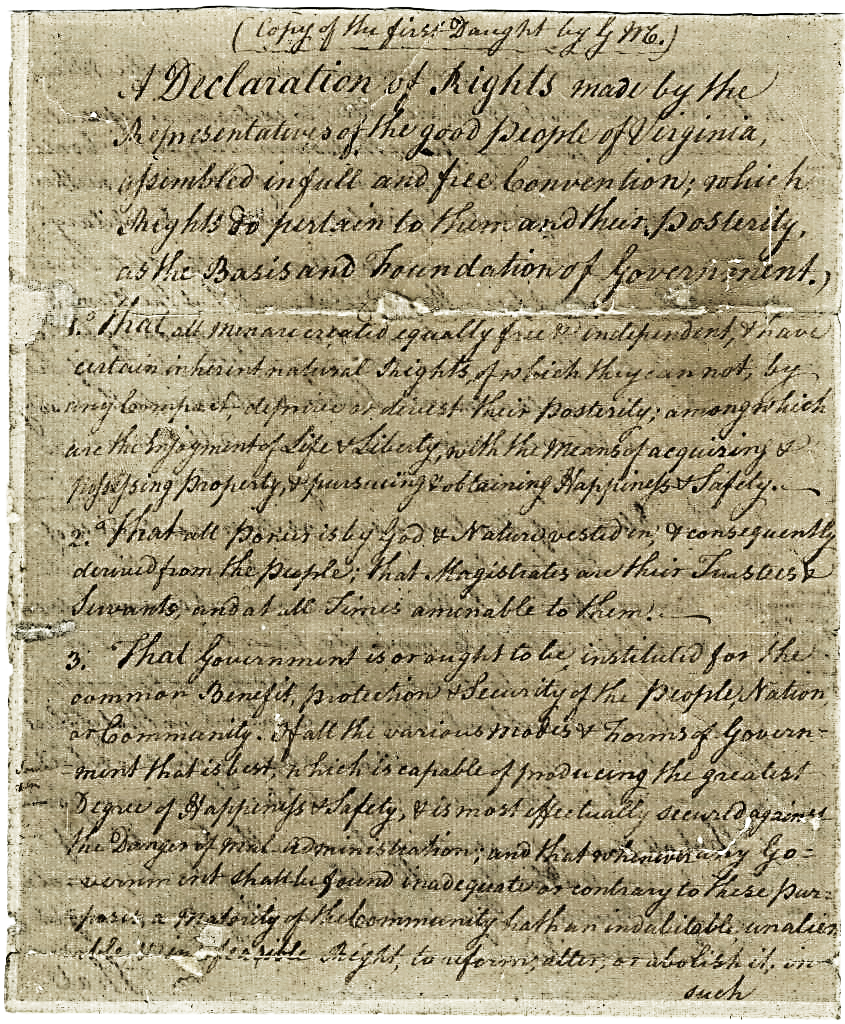 (Copy of the first Daught by G M.)
A Declaration of Rights made by the
Representatives of the good People of Virginia,
assembled in full and free Convention; which
Rights do pertain to them and their Posterity,
as the Basis and Foundation of Government.)
1.º That all Men are created equally free & independent, & have
certain inherent natural Rights, of which they can not, by
any Compact, deprive or divest their Posterity; among which
are the Enjoyment of Life & Liberty, with the Means of acquiring &
possessing Property, & pursuing & obtaining Happiness & Safety.
2.d That all Power is by God & Nature vested in, & consequently
derived from the People; that Magistrates are their Trustees &
Servants, and at all Times amenable to them.
3. That Government is or ought to be, instituted for the
common Benefit, protection & Security of the People, Nation,
or Community. Of all the various Modes & Forms of Govern-
-ment that is best, which is capable of producing the greatest
Degree of Happiness & Safety, & is most effectually secured against
the Danger of mal-administration; and that whenever any Go-
-vernment shall be found inadequate or contrary to these pur-
-poses, a Majority of the Community hath an indubitable unalien
able & indefeasible Right, to reform, alter, or abolish it, in
such